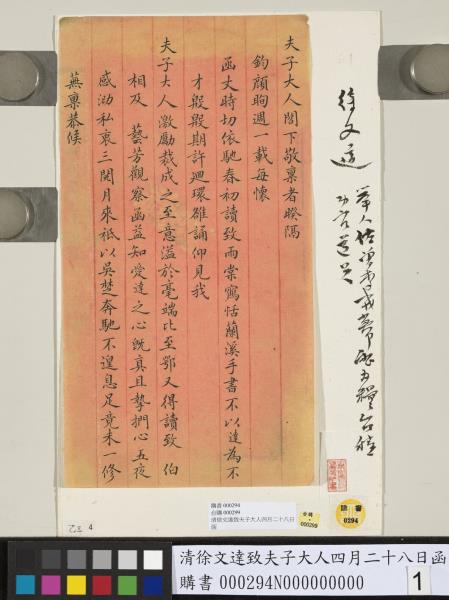 夫子大人閣下敬稟者暌隔
鈞顏昫週一載每懷
函丈時切依馳春初讀致雨棠寫恬蘭溪手書不以達為不
才殷殷期許迴環雒誦仰見我
夫子大人激勵裁成之至意溢於毫端比至鄂又得讀致 伯
相及 藝芳觀察函益知愛達之心既真且摯捫心五夜
感泐私衷三閱月來祇以吳楚奔馳不遑息足竟未一修
蕪稟恭候
徐文達
購書 000294
台購 000299
清徐文達致夫子大人四月二十八日
函
台購
000299
購書
0294
乙三 4
清徐文達致夫子大人四月二十八日函
購書 000294N000000000
1